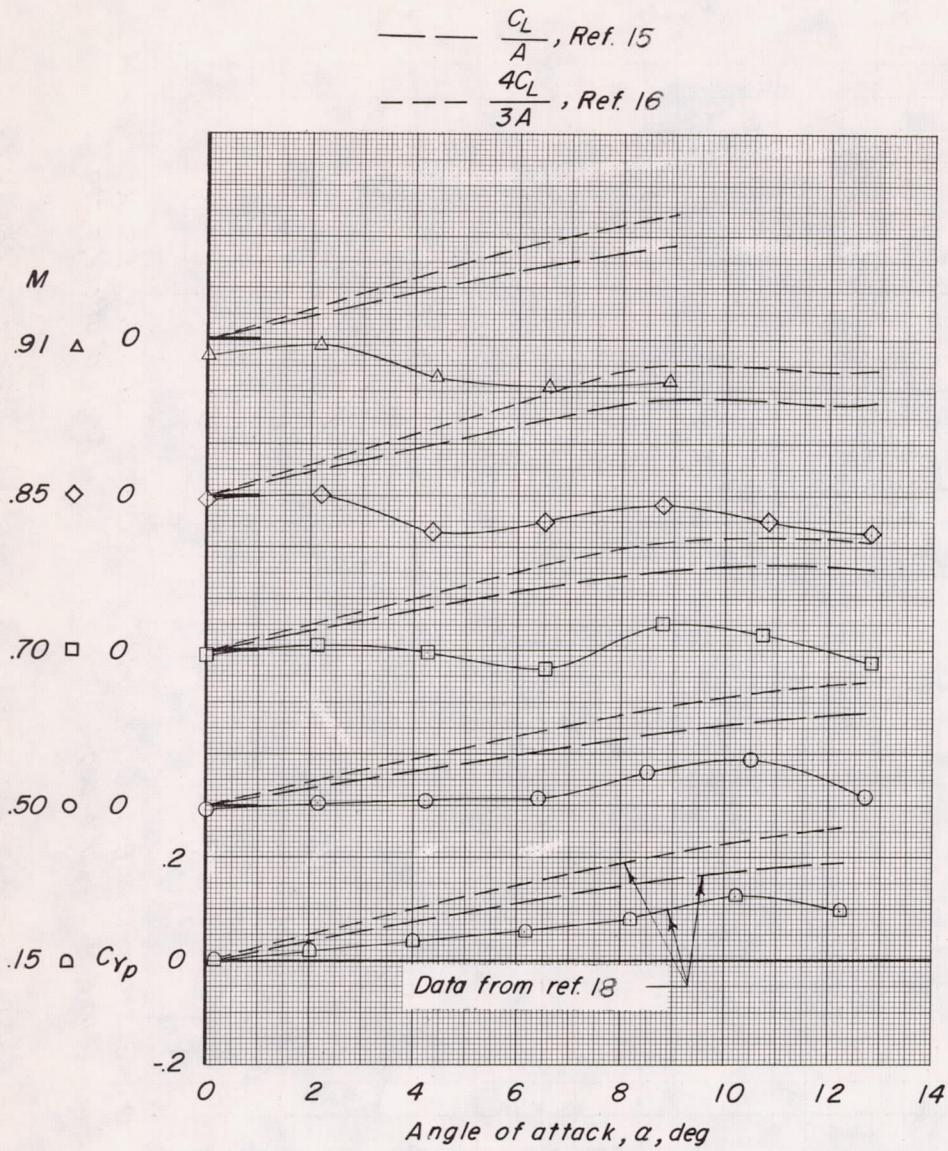 C_L/A, Ref. 15
4C_L/3A, Ref. 16
M
.91 0
.85 0
.70 0
.50 0
.2
.15 C_Yp 0
Data from ref. 18
-.2
0 2 4 6 8 10 12 14
Angle of attack, α, deg